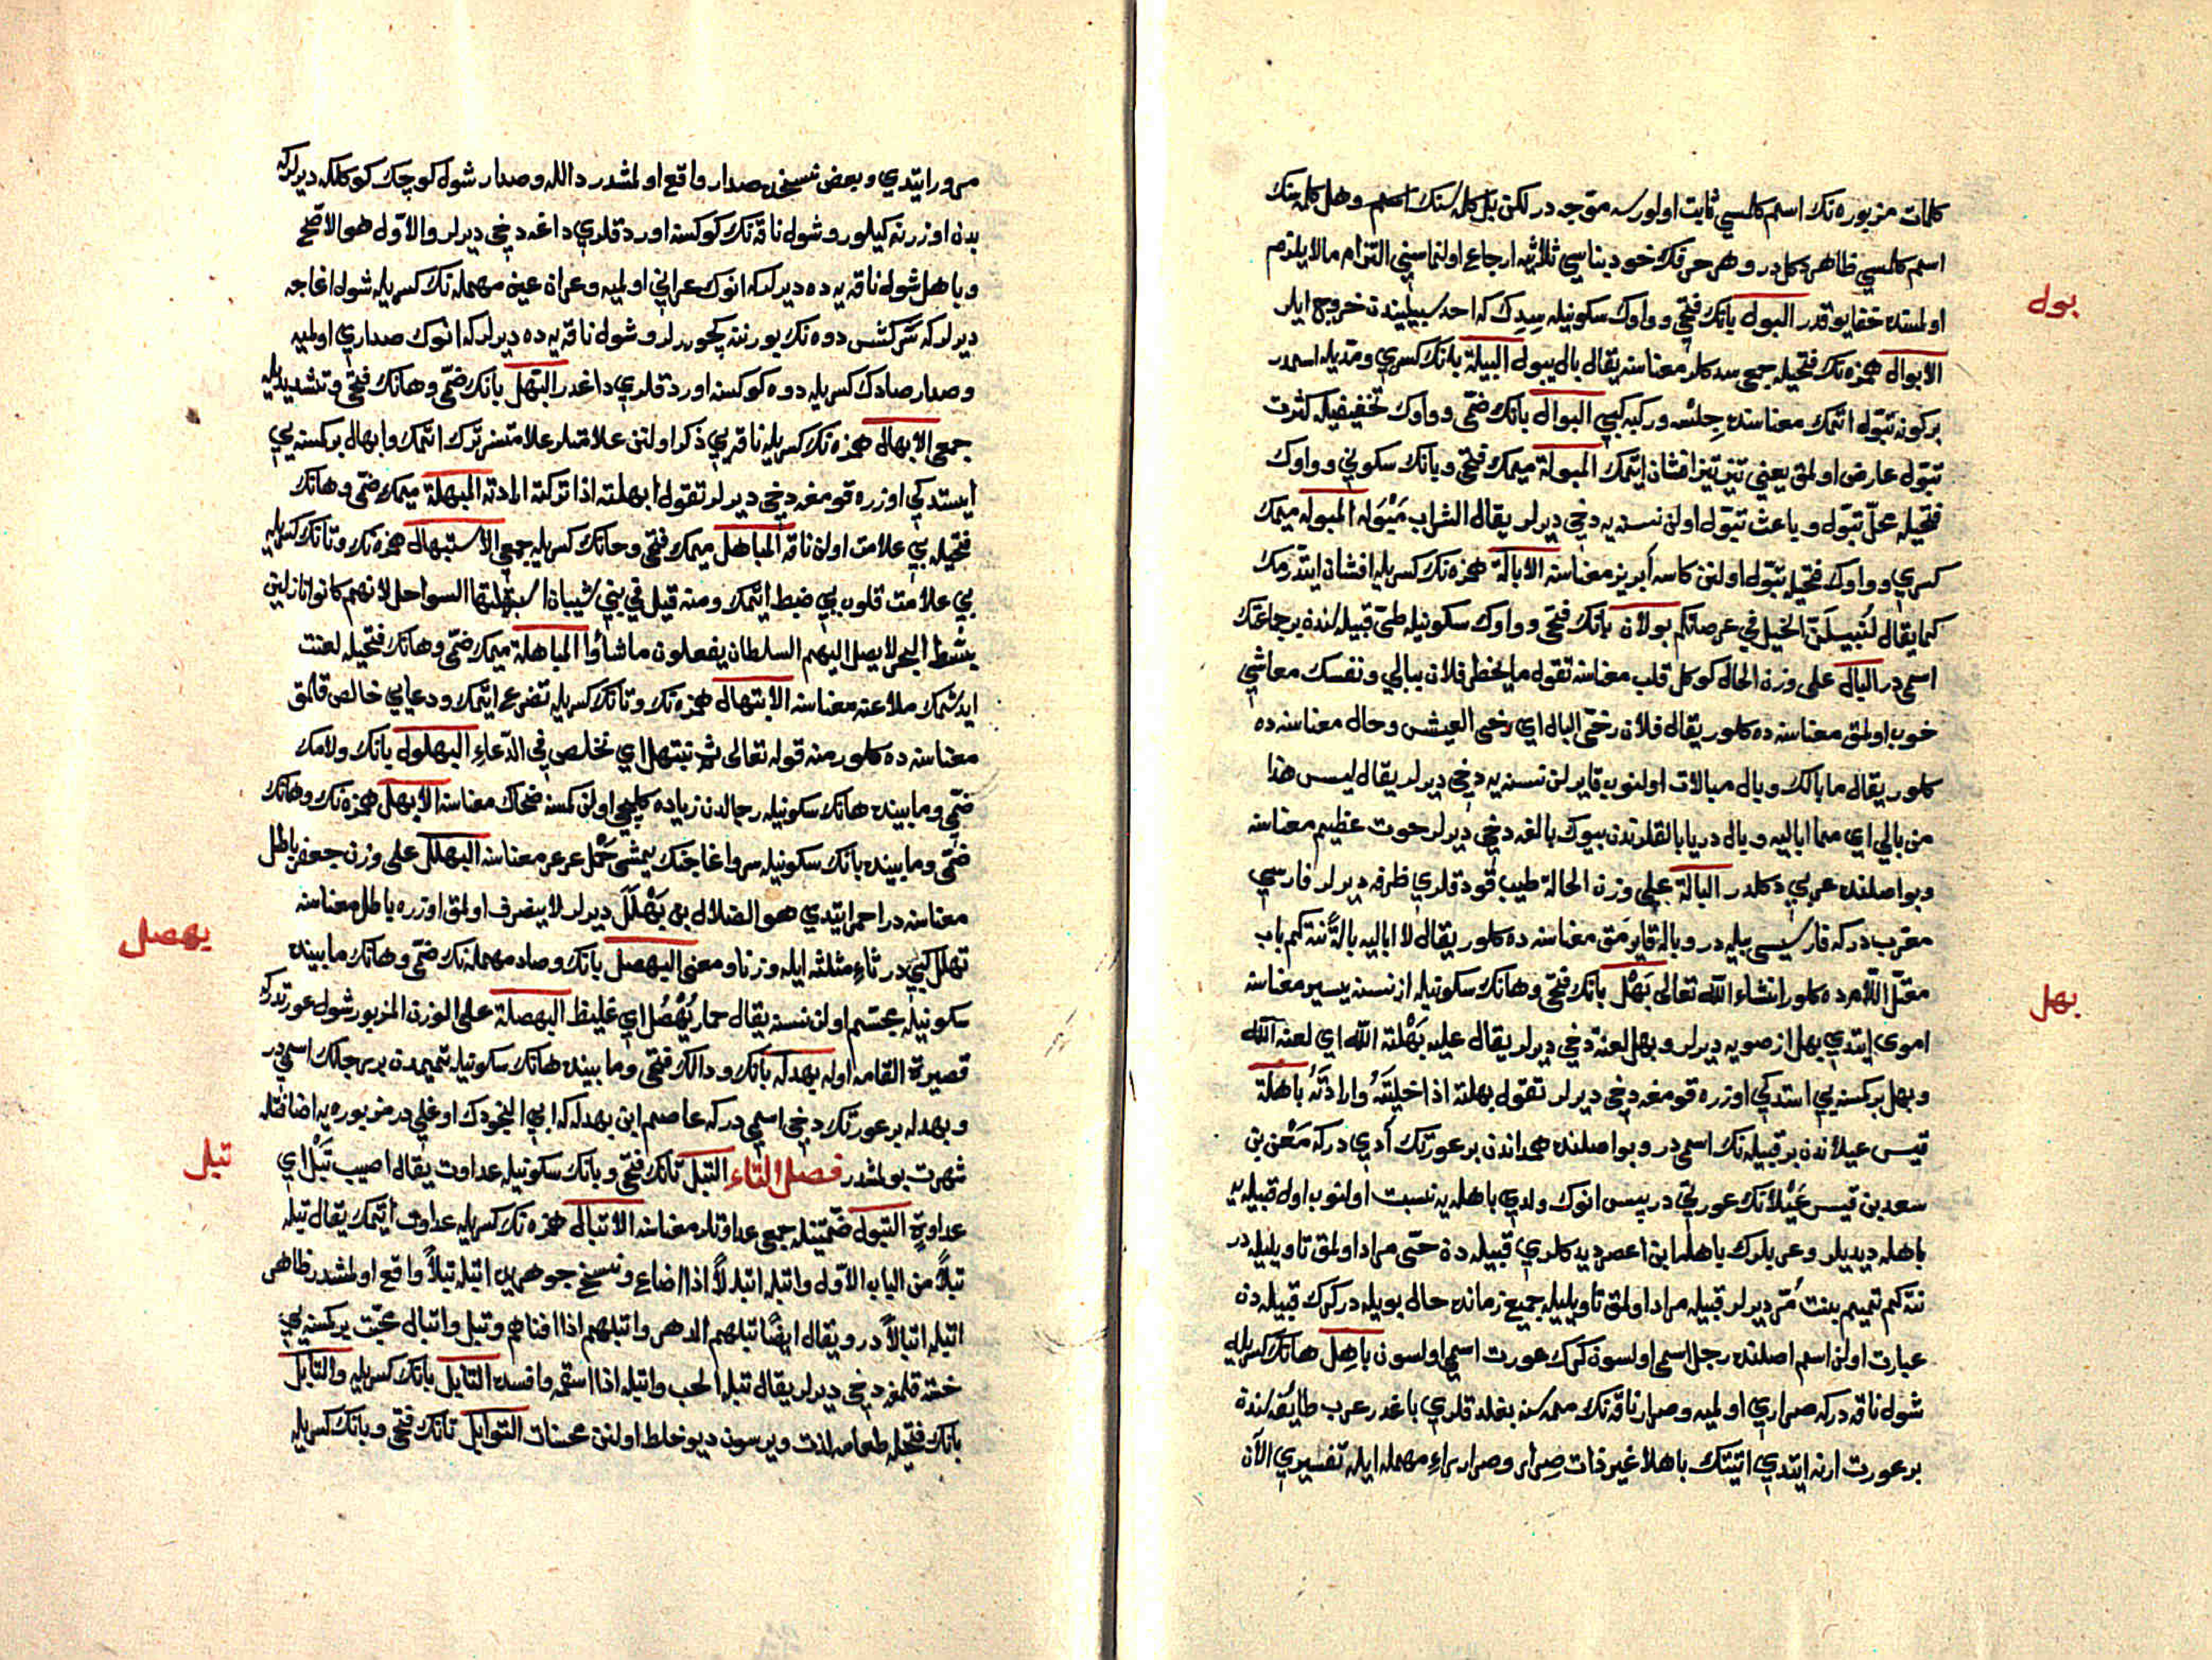 كلمات مزبوره نك اسم كلمسي ثابت اولورسه متوجه در لكن بل كلمه سنك اسم وهل كلمه سنك
اسم كلمسي ظاهر دكلدر وهر حرفك خود بناسي ثلاثيه ارجاع اولنماسني التزام مالا يلزم
اولمسنده خفا يوقدر البول بانك فتحي وواوك سكونيله سِدِك كه احد سبيليندن خروج ايلر
الابوال همزه نك فتحيله جمعي سدكلر معناسنه يقال بال يبول البيلة بانك كسري ومديله اسمدر
بركونه تبّول اتمك معناسنده جِلسْه وركبه كبي البوال بانك ضمّي وواوك تخفيفيله كثرت
تبّول عارض اولمق يعني تيز تيز افشان ايتمك المبولة ميمك فتحي وبانك سكوني وواوك
فتحيله محلّ تبّول وباعث تبّول اولن نسنه يه دخي ديرلر يقال الشراب مَبْوَلة المبوله ميمك
كسري وواوك فتحيله تبّول اولنن كاسه آبريز معناسنه الابالة همزه نك كسريله افشان ايتدرمك
كما يقال لنُبيلَنّ الخيل في عرصاتكم بولان بانك فتحي وواوك سكونيله طيّ قبيله سنده بر جماعتك
اسمي در البال على وزن الحال كوكل قلب معناسنه تقول ما يخطر فلان ببالي ونفسك معاشي
خوب اولمق معناسنه ده كلور يقال فلان رخيّ البال اي رخي العيش وحال معناسنه ده
كلور يقال ما بالك وبال مبالات اولنوب قايرلن نسنه يه دخي ديرلر يقال ليس هذا
من بالي اي مما اباليه وبال دريا بالقلرندن بيوك بالغه دخي ديرلر حوت عظيم معناسنه
وبو اصلنده عربي دكلدر البالة على وزن الحالة طيب قودقلري ظرفه ديرلر فارسي
معرّب در كه فارسيسي بيله در وبالة قايرمق معناسنه ده كلور يقال لا اباليه بالةً نته كم باب
معتلّ اللّامرده كلور انشاء اللّه تعالى بَهْل بانك فتحي وهانك سكونيله از نسنه يسير معناسنه
اموي ايتدي بهل از صويه ديرلر وبهل لعنه دخي ديرلر يقال عليه بَهْلة اللّه اي لعنة اللّه
وبهل بر كسنه يي استدكي اوزره قومغه دخي ديرلر تقول بهلته اذا خليّتَهُ وارادتَهُ باهلة
قيس عيلاندن بر قبيله نك اسمي در وبو اصلنده همداندن بر عورتك آدي در كه مَعْن بن
سعد بن قيس عَيْلانك عورتي در پس انوك ولدي باهله يه نسبت اولنوب اول قبيله يه
باهله ديديلر وعربلرك باهلة ابن اعصر ديدكلري قبيله دن حتّى مراد اولمق تاويليله در
نته كم تميم بنت مُرّ ديرلر قبيله مراد اولمق تاويليله جميع زمانده حال بويله در كرك قبيله دن
عبارت اولن اسم اصلنده رجل اسمي اولسون كرك عورت اسمي اولسون باهِل هانك كسريله
شول ناقه در كه صراري اولميه وصرار ناقه نك ممه سنه بغلدقلري باغدر عرب طايفه سنده
بر عورت ارنه ايتدي اتيتك باهلا غير ذات صِرار وصرار راءِ مهمله ايله تفسيري الآن
مرور ايتدي وبعض نسخده صدار واقع اولمشدر دالله وصدار شول كوچك كوكلكه ديرلر كه
بدن اوزرنه كيلور وشول ناقه نك كوكسنه اوردقلري داغه دخي ديرلر والاوّل هو الاصّح
وباهل شول ناقه يه ده ديرلر كه انوك عراني اولميه وعران عين مهمله نك كسريله شول اغاجه
ديرلر كه سَركش دوه نك بورننه كچوررلر وشول ناقه يه ده ديرلر كه انوك صداري اولميه
وصدار صادك كسريله دوه كوكسنه اوردقلري داغدر البّهل بانك ضمّي وهانك فتحي وتشديديله
جمعي الابهال همزه نك كسريله ناقه يي ذكر اولنن علامتلر علامتسز ترك اتمك وابهال بر كسنه يي
ايستدكي اوزره قومغه دخي ديرلر تقول ابهلته اذا تركته ارادته المبهلة ميمك ضمّي وهانك
فتحيله بي علامت اولن ناقه المباهل ميمك فتحي وهانك كسريله جمعي الاستبهال همزه نك وتانك كسريله
بي علامت قلوب بي ضبط اتمك ومنه قيل في بني شيبان استبهلتها السواحل لانهم كانوا نازلين
بشطّ البحر لا يصل اليهم السلطان يفعلون ما شاؤا المباهلة ميمك ضمّي وهانك فتحيله لعنت
ايدشمك ملاعنه معناسنه الابتهال همزه نك وتانك كسريله تضرعى ايتمك ودعايي خالص قلمق
معناسنه ده كلور منه قوله تعالى ثم نبتهل اي نخلص في الدّعاءِ البهلول بانك ولامك
ضمّي ومابينده هانك سكونيله رجالدن زياده كلهجي اولن كمسنه ضحّاك معناسنه الابهل همزه نك وهانك
ضمّي ومابينده بانك سكونيله سرو اغاجنك يمشي حَمْل عرعر معناسنه البهلل على وزن جعفر باطل
معناسنه در احمر ايتدي هو الضلال بن بَهْلَلَ ديرلر لا ينصرف اولمق اوزره باطل معناسنه
ثهلل كبي در ثاءِ مثلثه ايله وزنا ومعنى البهصل بانك وصاد مهمله نك ضمّي وهانك مابينده
سكونيله مجسّم اولن نسنه يقال حمار بُهْصُل اي غليظ البهصلة على الوزن المزبور شول عورتدر كه
قصيرة القامه اوله بهدله بانك ودالك فتحي ومابينده هانك سكونيله تميمدن بر رجلك اسمي در
وبهدله بر عورتك دخي اسمي در كه عاصم ابن بهدله كه ابي النجودك اوغلي در مزبوره يه اضافتله
شهرت بولمشدر فصل التاء التبل تانك فتحي وبانك سكونيله عداوت يقال اصيب تَبْل اي
عداوة التبول ضمّتينله جمعي عداوتلر معناسنه الاتبال همزه نك كسريله عداوت ايتمك يقال تبله
تبلاً من الباب الاوّل واتبله اتبلاً اذا اضاع ونسخ جوهريده اتبله تبلاً واقع اولمشدر ظاهر
اتبله اتبالاً در ويقال ايضًا تبلهم الدهر واتبلهم اذا افناهم وتبل واتبال محبّت بر كسنه يي
خسته قلمغه دخي ديرلر يقال تبله الحب واتبله اذا اسقمه وافسده التابل بانك كسريله والتابل
بانك فتحيله طعامه لذت ويرسون ديو خلط اولنن محسنات التوابل تانك فتحي وبانك كسريله
بول
بهل
بهصل
تبل